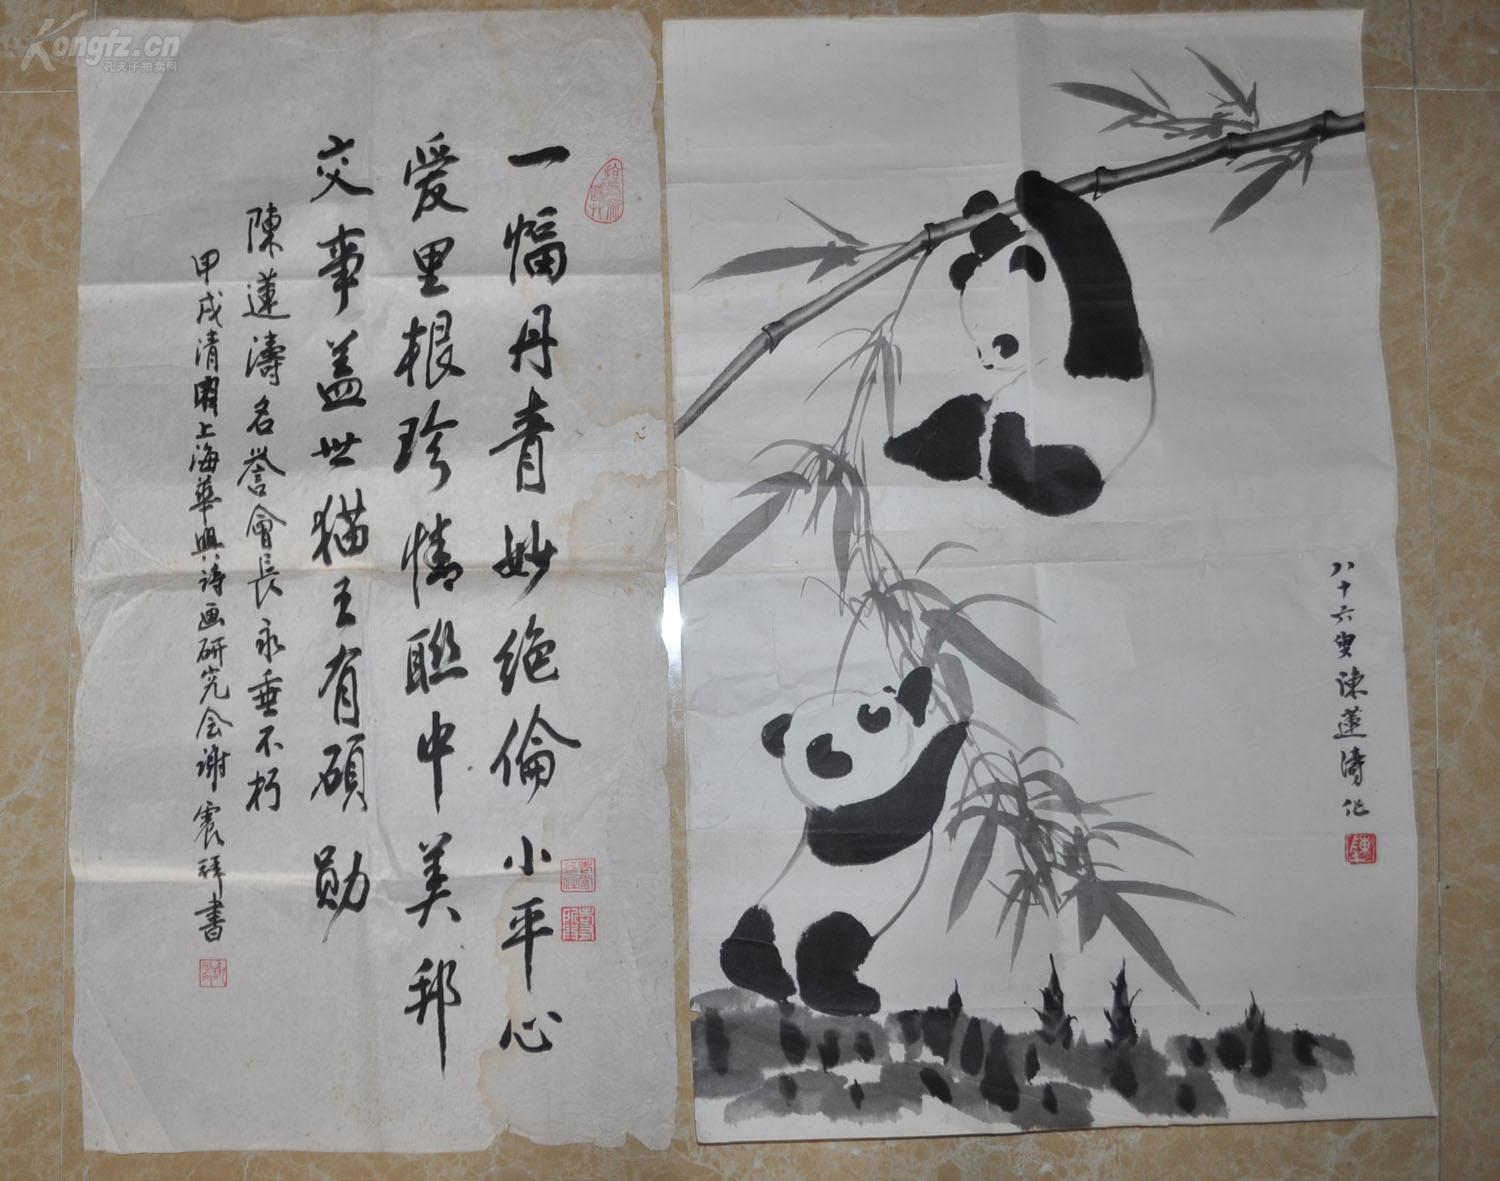 Kongfz.cn
孔夫子拍卖网
一幅丹青妙绝倫小平心
爱里根珍情聯中美邦
交事盖世猫王有碩勋
陳蓮濤名誉會長永垂不朽
甲戌清明上海華興诗画研究会谢震祥書
八十六叟陳蓮濤作